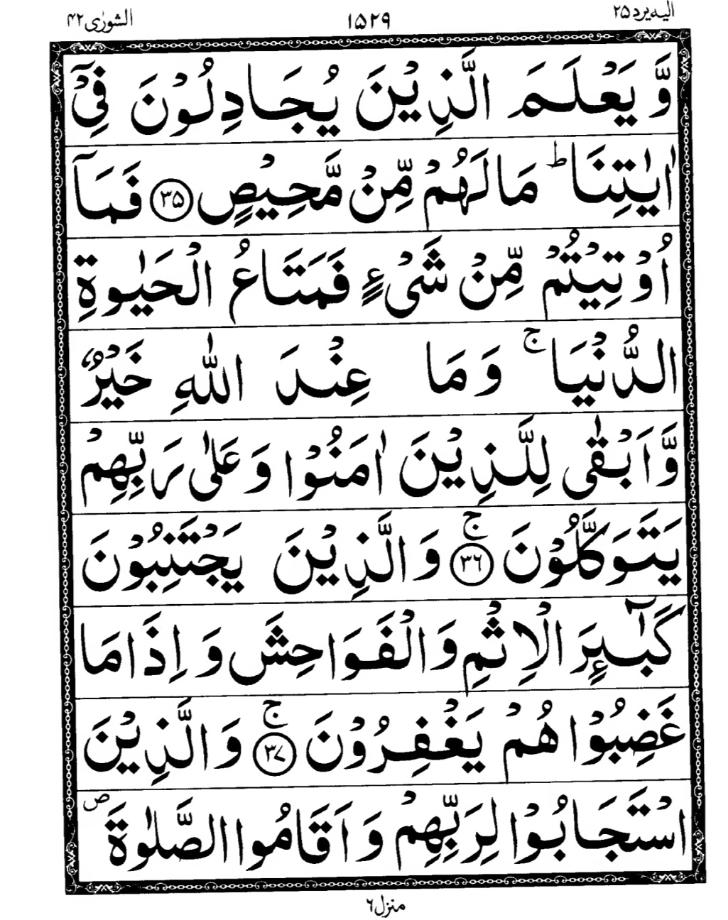 الیه یرد ۲۵ ۱۵۲۹ الشورٰی ۴۲
وَّ یَعْلَمَ الَّذِیْنَ یُجَادِلُوْنَ فِیْۤ
اٰیٰتِنَا ؕ مَا لَهُمْ مِّنْ مَّحِیْصٍ ۳۵ فَمَاۤ
اُوْتِیْتُمْ مِّنْ شَیْءٍ فَمَتَاعُ الْحَیٰوةِ
الدُّنْیَا ۚ وَ مَا عِنْدَ اللّٰهِ خَیْرٌ
وَّ اَبْقٰی لِلَّذِیْنَ اٰمَنُوْا وَ عَلٰی رَبِّهِمْ
یَتَوَكَّلُوْنَ ۚ ۳۶ وَ الَّذِیْنَ یَجْتَنِبُوْنَ
كَبٰٓىِٕرَ الْاِثْمِ وَ الْفَوَاحِشَ وَ اِذَا مَا
غَضِبُوْا هُمْ یَغْفِرُوْنَ ۚ ۳۷ وَ الَّذِیْنَ
اسْتَجَابُوْا لِرَبِّهِمْ وَ اَقَامُوا الصَّلٰوةَ ۪
منزل ۶